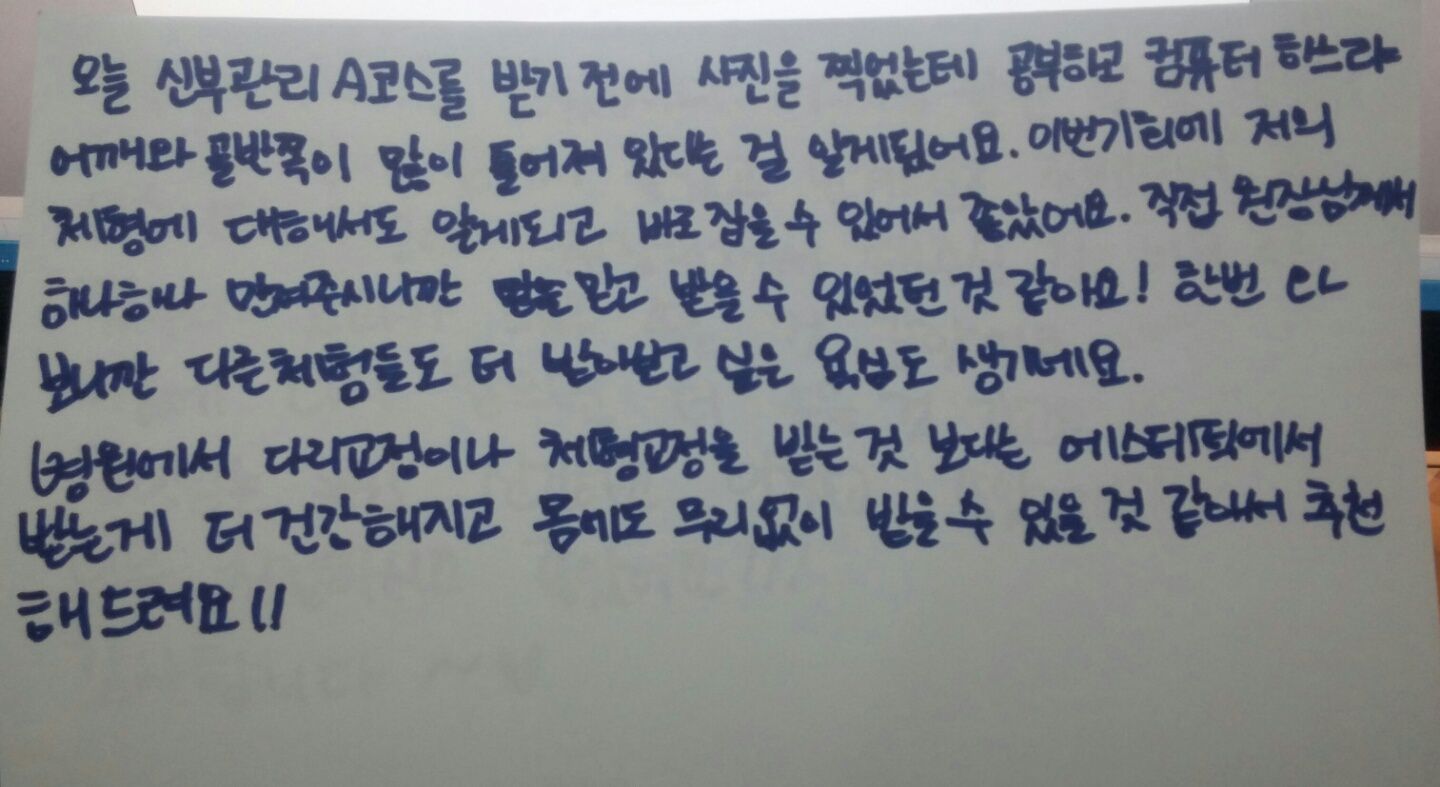 오늘 신부관리 A코스를 받기 전에 사진을 찍었는데 공부하고 컴퓨터 하느라
어깨와 골반쪽이 많이 틀어져 있다는 걸 알게됬어요. 이번기회에 저의
체형에 대해서도 알게되고 바로 잡을 수 있어서 좋았어요. 직접 원장님께서
하나하나 만져주시니깐 믿고 받을 수 있었던 것 같아요! 한번
보니깐 다른체형들도 더 받아보고 싶은 욕심도 생기네요.
병원에서 다리교정이나 체형교정을 받는 것 보다는 에스테틱에서
받는게 더 건강해지고 몸에도 무리없이 받을 수 있을 것 같아서 추천
해드려요!!